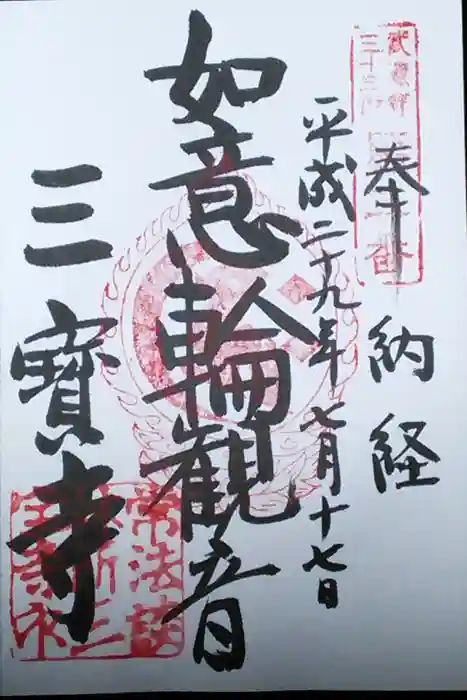 奉納経
平成二十九年七月十七日
如意輪観音
三寳寺